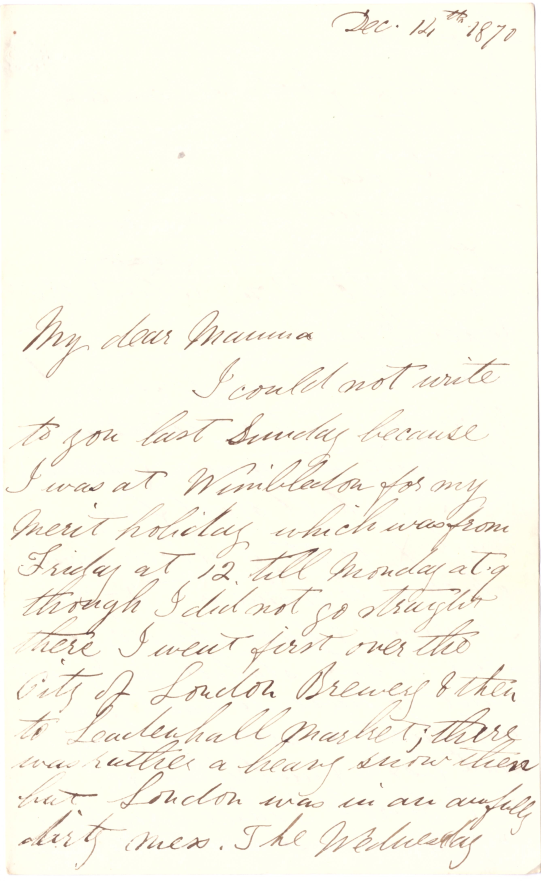 Dec. 14th 1870
My dear Mamma
I could not write
to you last Sunday because
I was at Wimbledon for my
Merit holiday which was from
Friday at 12 till Monday at 9
though I did not go straight
there I went first over the
City of London Brewery & then
to Leadenhall Market; there
was rather a heavy snow then
but London was in an awfully
dirty mess. The Wednesday